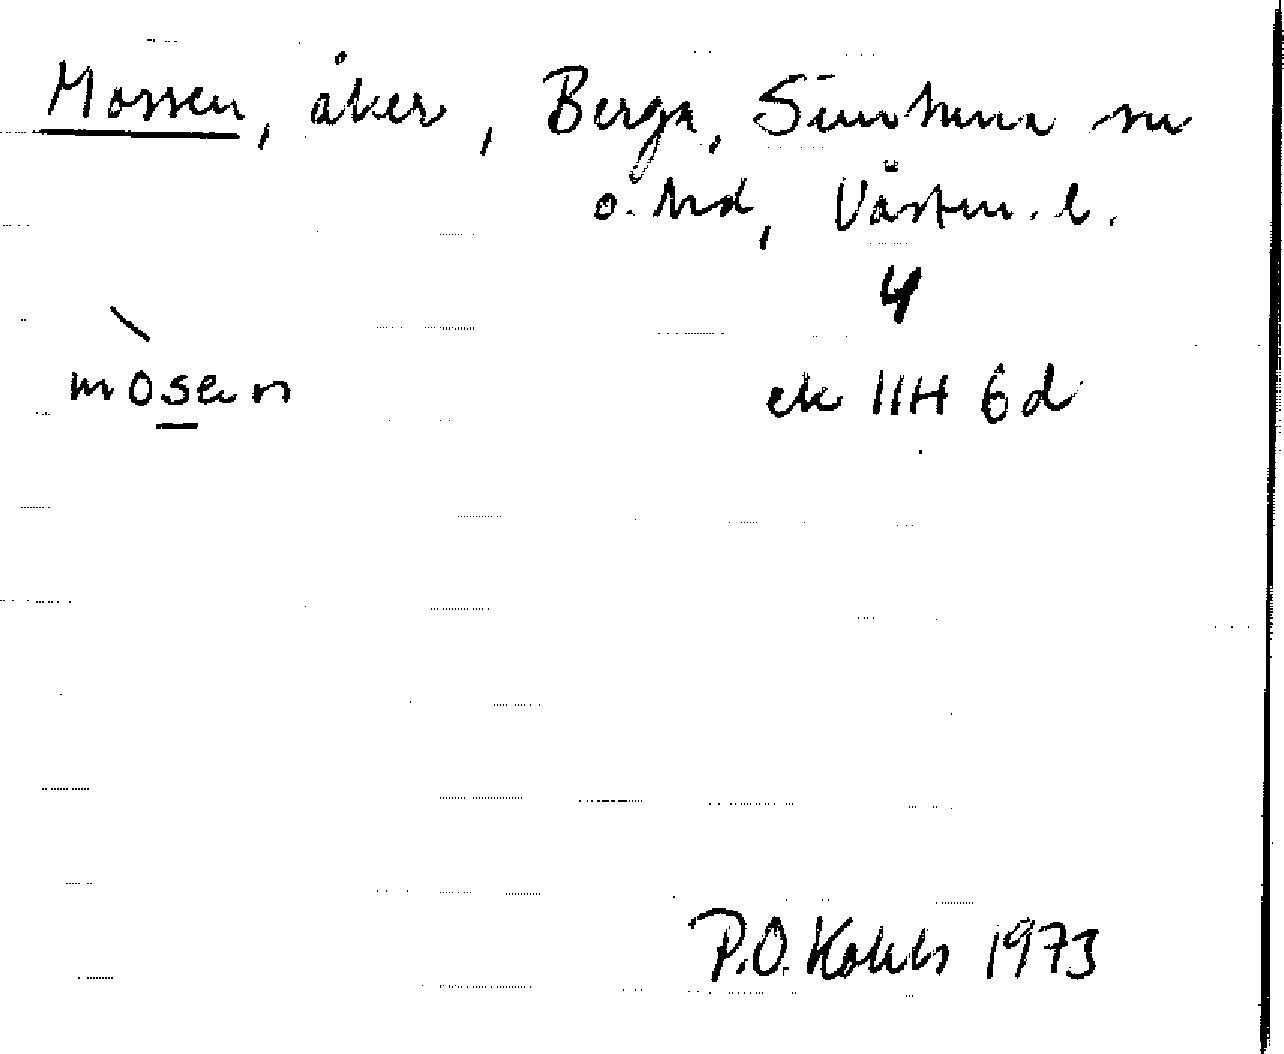 Mossen, åker, Berga, Simtuna sn
o. hd, Västm. l.
4
mòsen
ek 11H 6d
P.O. 1973